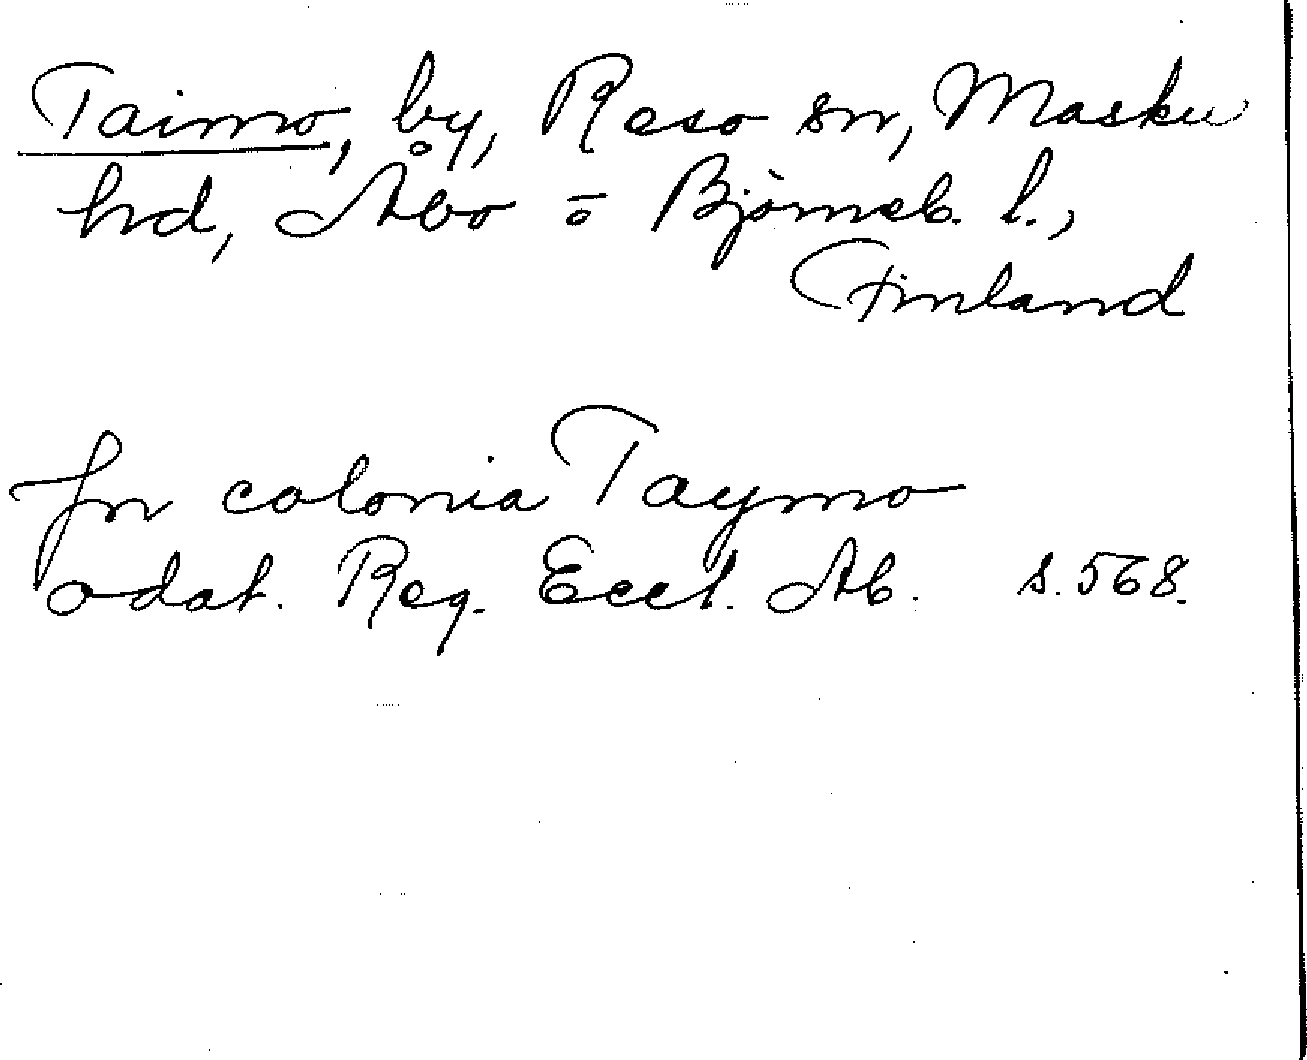 Taimo, by, Reso sn, Masku
hd, Åbo o Björneb. l.,
Finland
Jn colonia Taymo
odat. Reg. Eccl. Ab. s. 568.